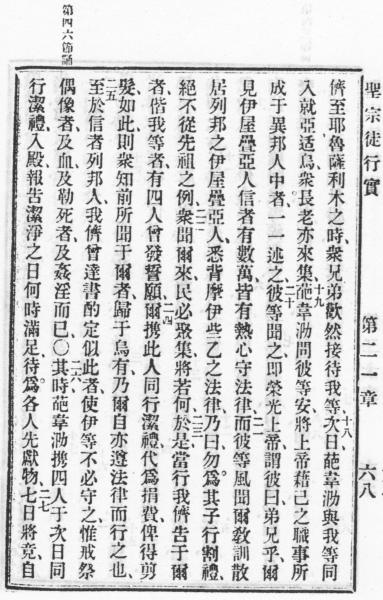 聖宗徒行實 第二一章 六八
儕至耶魯薩利木之時、衆兄弟歡然接待我等、十八次日葩韋泐與我等同
入就亞适烏、衆長老亦來集、十九葩韋泐問彼等安、將上帝藉己之職事所
成于異邦人中者、一一述之、二十彼等聞之、即荣光上帝、謂彼曰、弟兄乎、爾
見伊屋疊亞人信者有數萬、皆有熱心守法律、二一而彼等風聞爾敎訓散
居列邦之伊屋疊亞人、悉背摩伊些乙之法律、乃曰、勿爲其子行割禮、
絕不從先祖之例、二二衆聞爾來、民必聚集、將若何、二三於是當行我儕告于爾
者、偕我等者有四人、曾發誓願、二四爾携此人同行潔禮、代爲捐費、俾得剪
髮、如此則衆知前所聞于爾者、歸于烏有、乃爾自亦遵法律而行之也、
二五至於信者列邦人、我儕曾達書酌定、似此者使伊等不必守之、惟戒祭
偶像者、及血、及勒死者、及姦淫而已、〇二六其時葩韋泐携四人、于次日同
行潔禮、入殿報告潔淨之日、何時滿足、待爲各人先獻物、二七七日將竟、自
第四六節誦